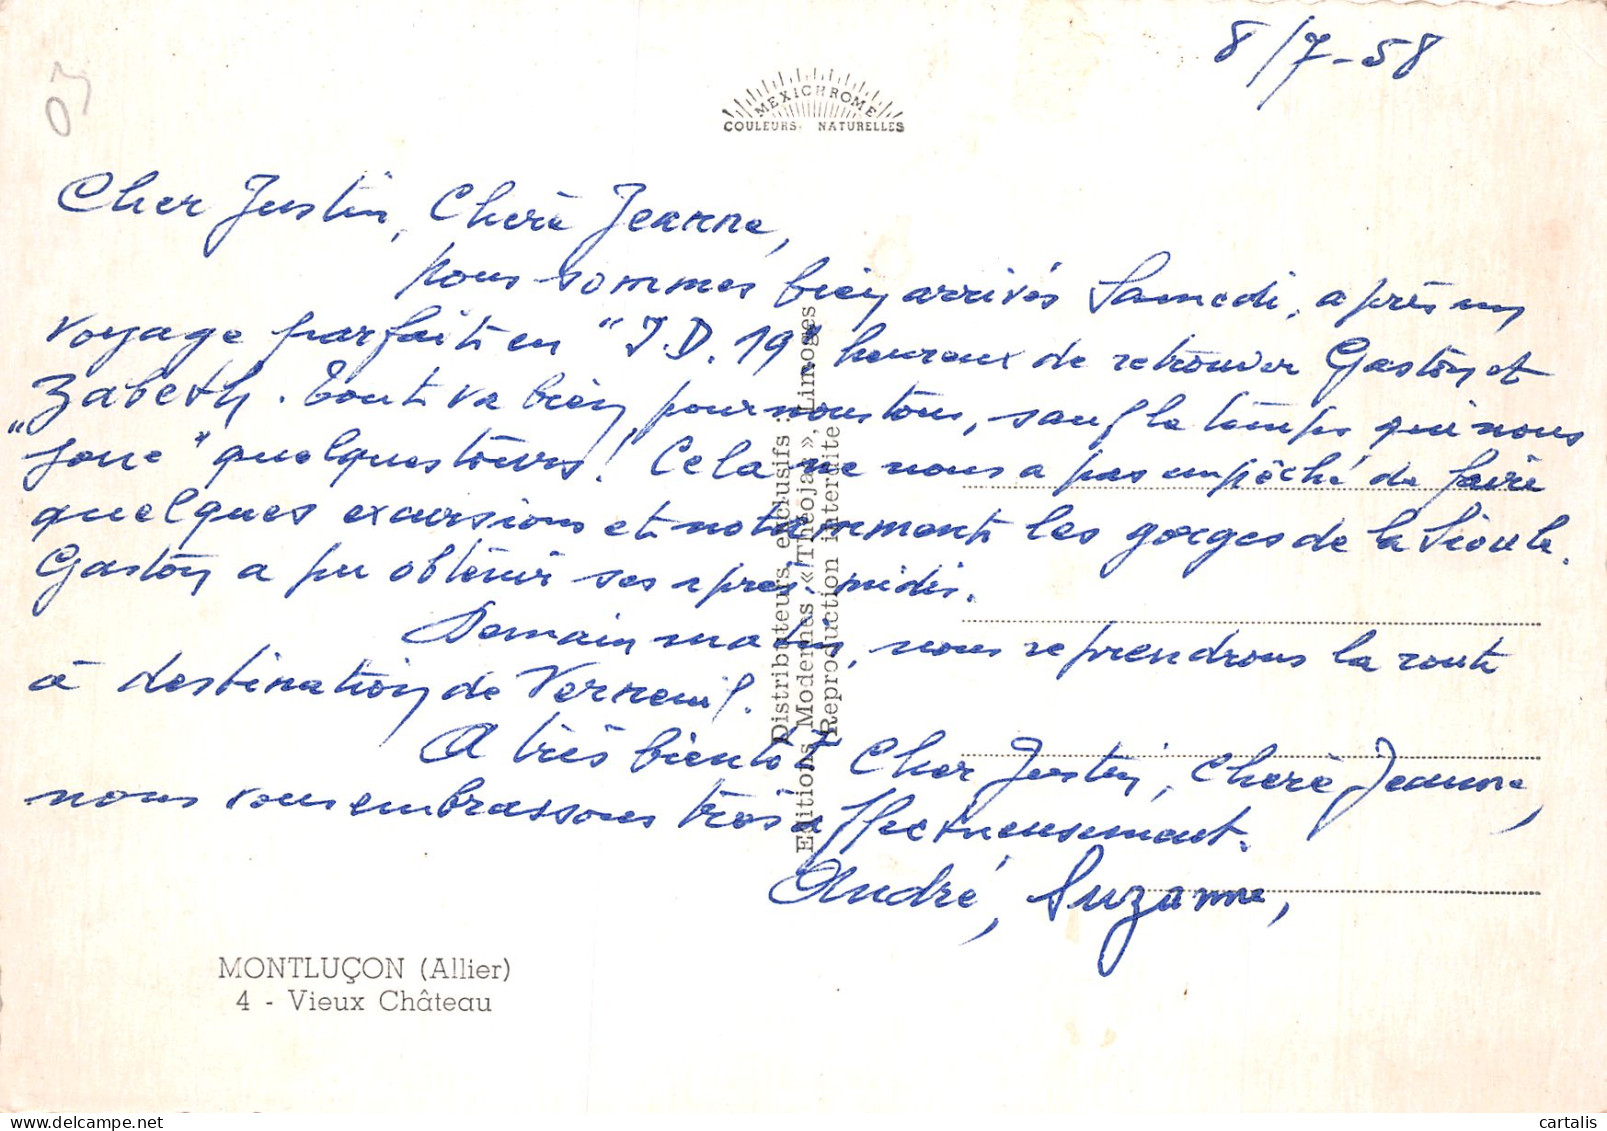 03
8/7-58
MEXICHROME
COULEURS NATURELLES
Cher Justin, Chère Jeanne,
nous sommes bien arrivés Samedi, après un
voyage parfait en "I.D. 19" heureux de retrouver Gaston et
Zabeth. Tout va bien, pour nous tous, sauf le temps qui nous
"joue" quelques tours! Cela ne nous a pas empêché de faire
quelques excursions et notamment les gorges de la Sioule.
Gaston a pu obtenir ses après-midis.
Demain matin, nous reprendrons la route
à destination de Verneuil.
A très bientôt Cher Justin, Chère Jeanne,
nous vous embrassons très affectueusement.
André, Suzanne,
Distributeurs exclusifs :
Editions Modernes « Théojac », Limoges
(Reproduction interdite)
MONTLUÇON (Allier)
4 - Vieux Château
cartalis
delcampe.net